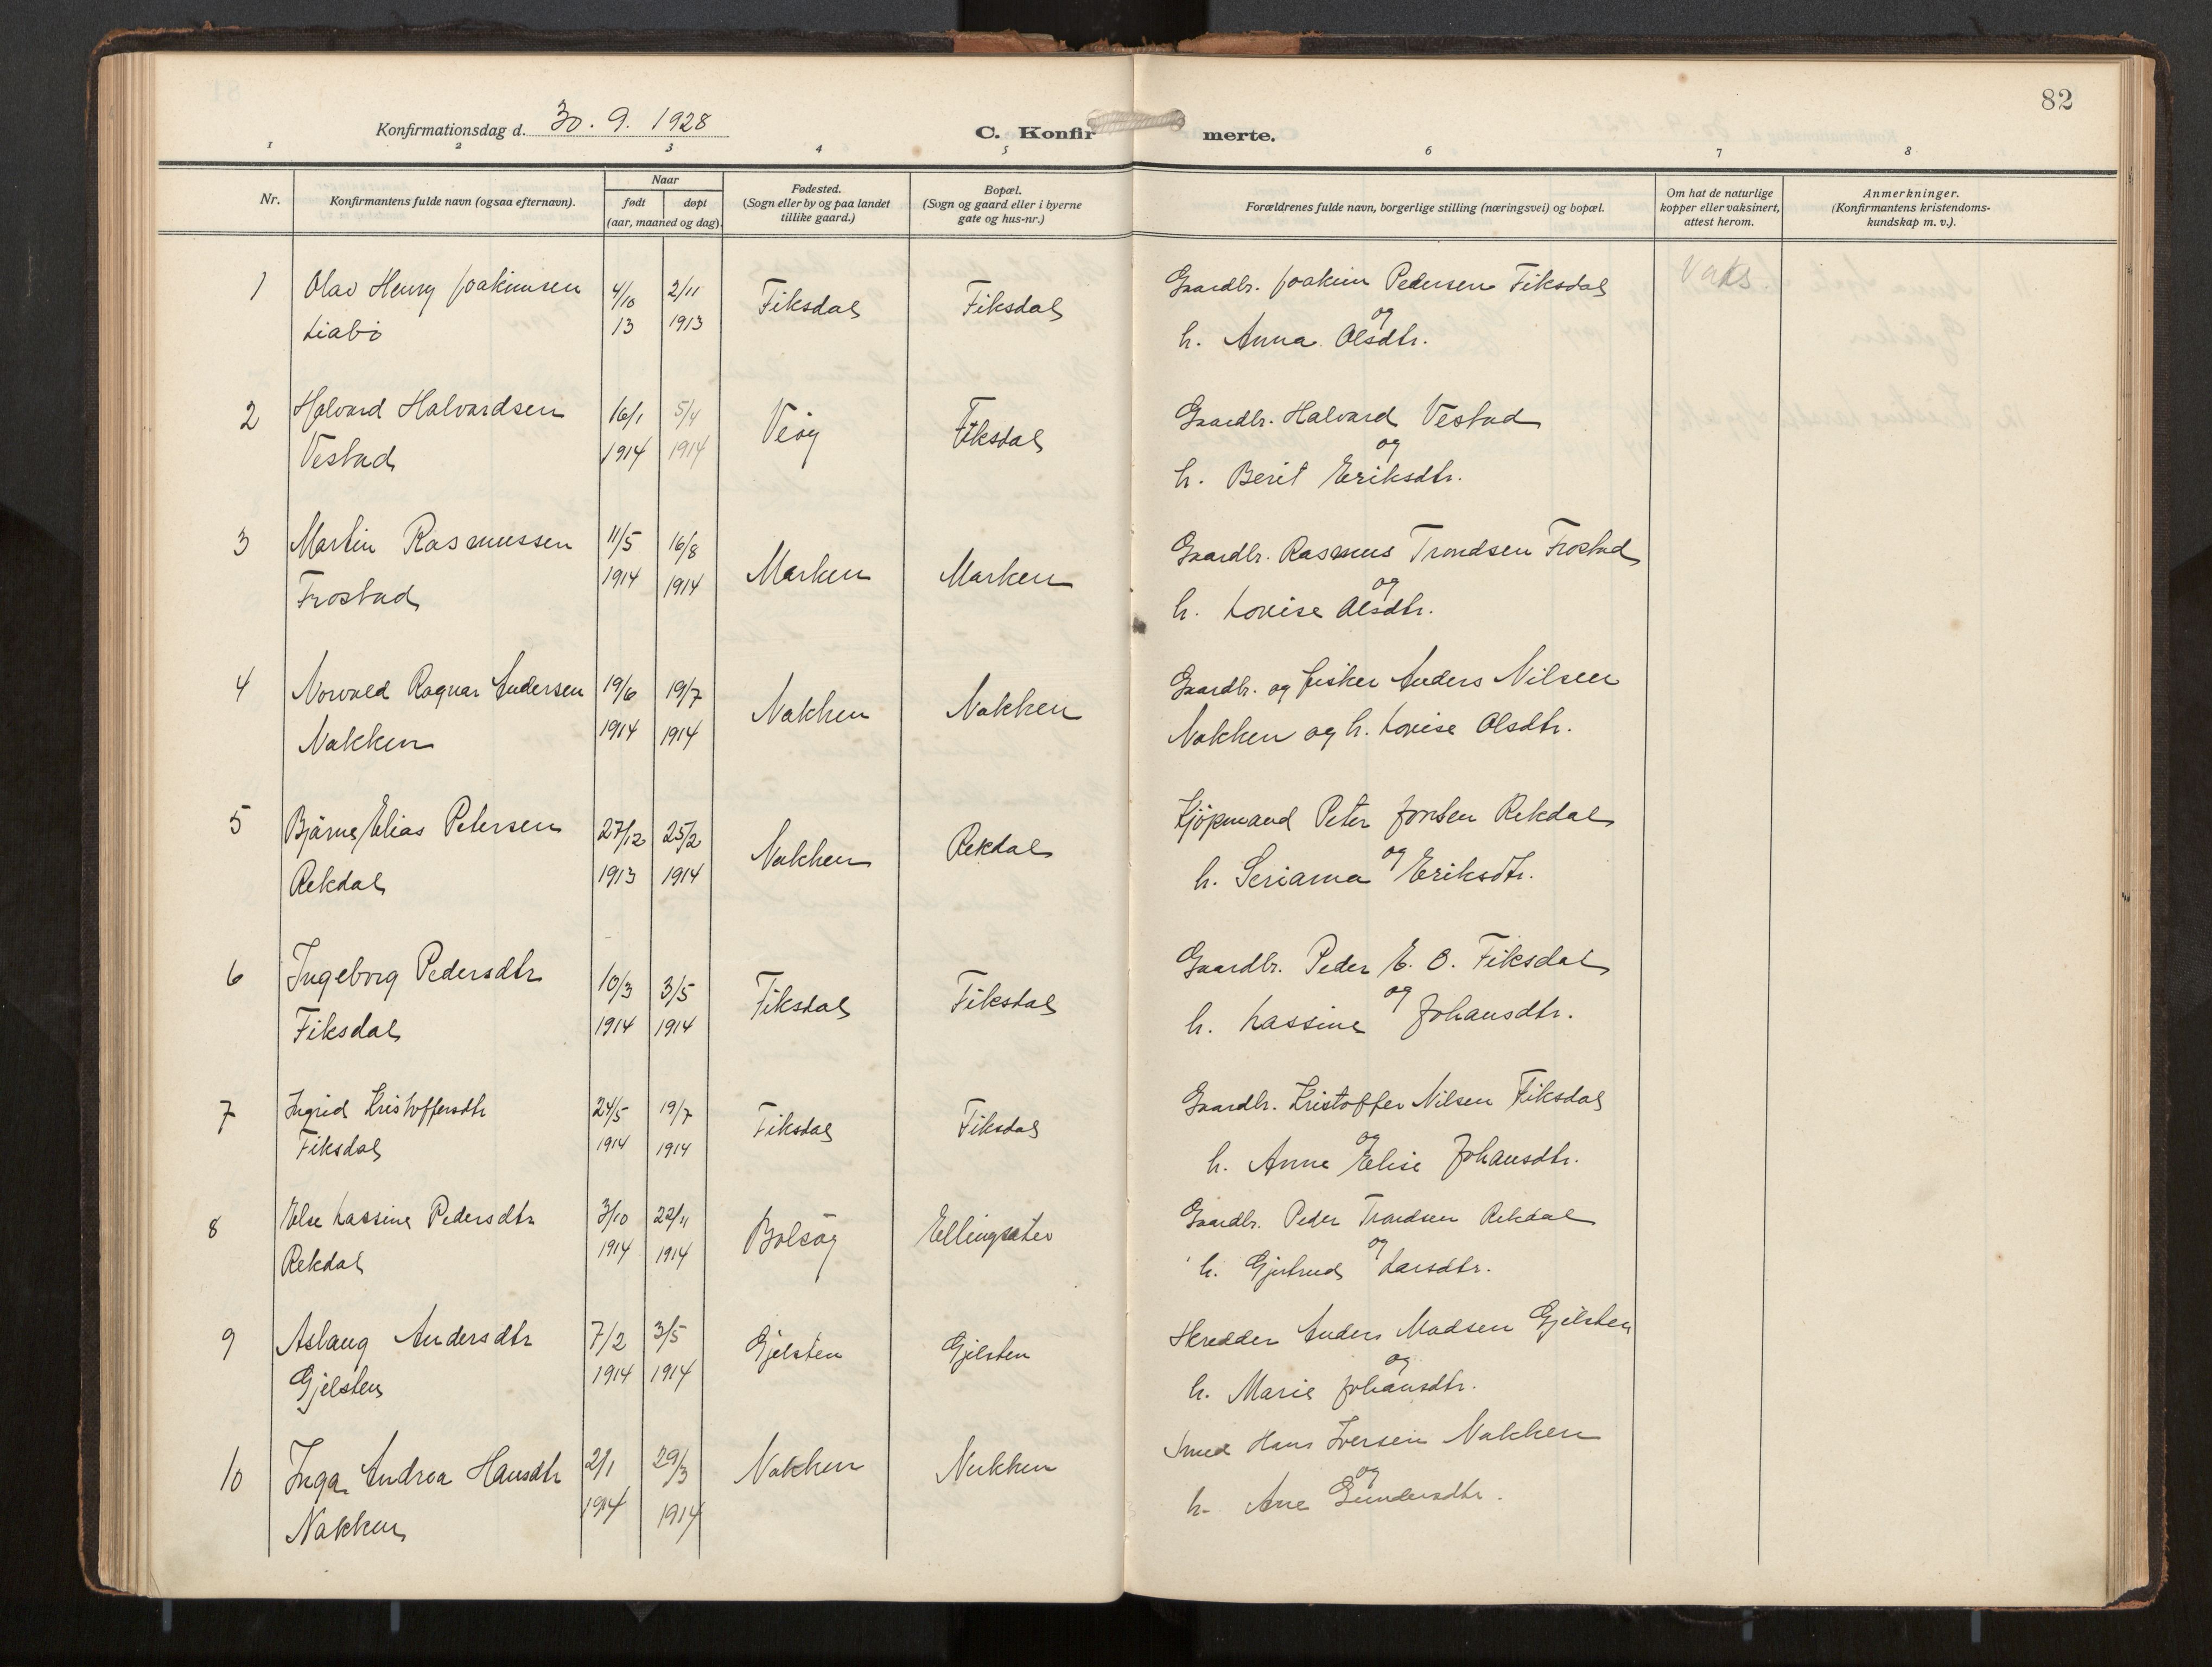 82
Konfirmationsdag d. 30. 9. 1928
C. Konfirmerte.
1 2 3 4 5 6 7 8
Nr.
Konfirmantens fulde navn (ogsaa efternavn).
Naar
født
døpt
(aar, maaned og dag).
Fødested.
(Sogn eller by og paa landet
tillike gaard.)
Bopæl.
(Sogn og gaard eller i byerne
gate og hus-nr.)
Forældrenes fulde navn, borgerlige stilling (næringsvei) og bopæl.
Om hat de naturlige
kopper eller vaksinert,
attest herom.
Anmerkninger.
(Konfirmantens kristendoms-
kundskap m. v.).
1 Olav Henry Joakimsen 4/10 2/11 Fiksdal Fiksdal Gaardbr. Joakim Pedersen Fiksdal Vaks.
Liabö 13 1913 og
h. Anna Olsdtr.
2 Halvard Halvardsen 16/1 5/4 Veöy Fiksdal Gaardbr. Halvard Vestad
Vestad 1914 1914 og
h. Berit Eriksdtr.
3 Martin Rasmussen 11/5 16/8 Marken Marken Gaardbr. Rasmus Trondsen Frostad
Frostad 1914 1914 og
h. Lovise Olsdtr.
4 Norvald Ragnar Andersen 19/6 19/7 Nakken Nakken Gaardbr. og fisker Anders Nilsen
Nakken 1914 1914 Nakken og h. Lovise Olsdtr.
5 Bjarne Elias Petersen 27/12 25/2 Nakken Rekdal Kjöpmand Peter Jonsen Rekdal
Rekdal 1913 1914 og
h. Serianna Eriksdtr.
6 Ingeborg Pedersdtr 10/3 3/5 Fiksdal Fiksdal Gaardbr. Peder E. O. Fiksdal
Fiksdal 1914 1914 og
h. Lassine Johansdtr.
7 Ingrid Kristoffersdtr 24/5 19/7 Fiksdal Fiksdal Gaardbr. Kristoffer Nilsen Fiksdal
Fiksdal 1914 1914 og
h. Anne Elise Johansdtr.
8 Else Lassine Pedersdtr 3/10 22/11 Bolsöy Ellingsæter Gaardbr. Peder Trondsen Rekdal
Rekdal 1914 1914 og
h. Gjertrud Larsdtr.
9 Aslaug Andersdtr 7/2 3/5 Gjelsten Gjelsten Skredder Anders Madsen Gjelsten
Gjelsten 1914 1914 og
h. Marie Johansdtr.
10 Inga Andrea Hansdtr 2/1 29/3 Nakken Nakken Smed Hans Iversen Nakken
Nakken 1914 1914 og
h. Ane Gundersdtr.